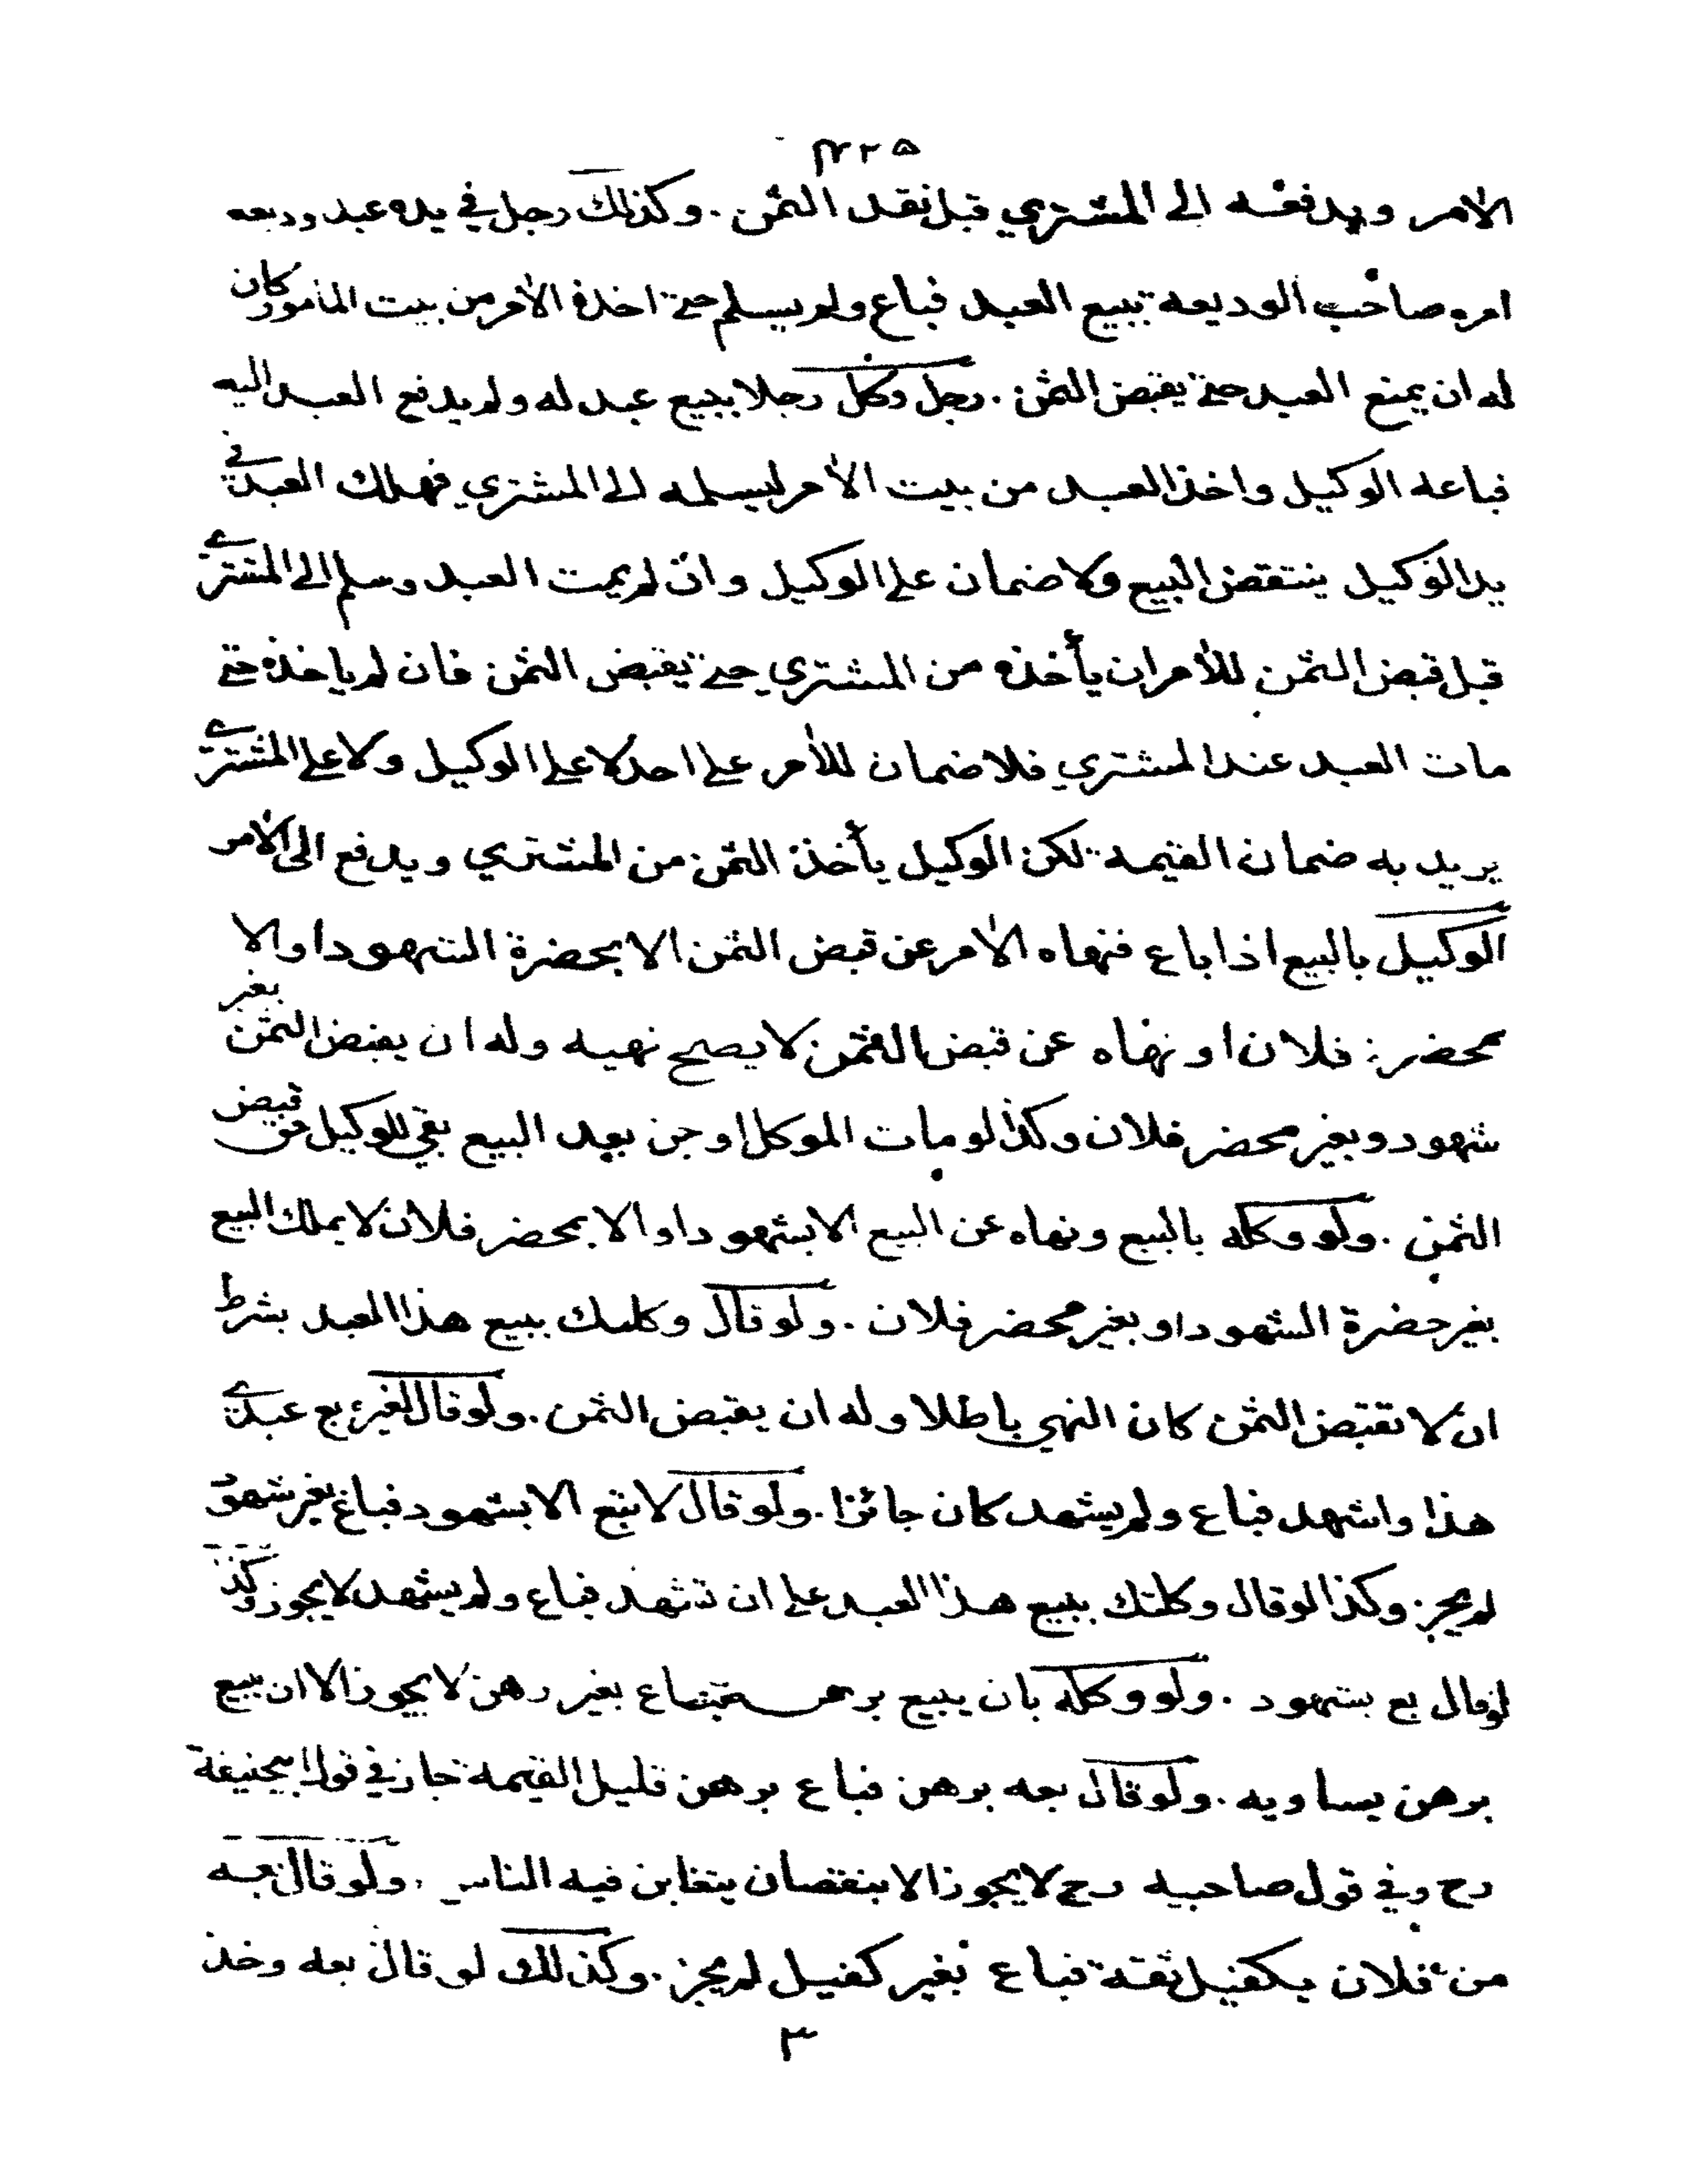 ٤٢٢٥
الامر ويدفعه الى المشتري قبل نقد الثمن. وكذلك رجل في يده عبد وديعه
امره صاحب الوديعة ببيع العبد فباع ولم يسلم حتى اخذه الامر من بيت المامور كان
له ان يمنع العبد حتى يقبض الثمن. رجل وكل رجلا ببيع عبد له ولم يدفع العبد اليه
فباعه الوكيل واخذ العبد من بيت الآمر ليسلمه الى المشتري فهلك العبد في
يد الوكيل ينتقض البيع ولا ضمان على الوكيل وان لم يمت العبد وسلم الى المشتري
قبل قبض الثمن للآمر ان يأخذه من المشتري حتى يقبض الثمن فان لم ياخذه حتى
مات العبد عند المشتري فلا ضمان للآمر على احد لا على الوكيل ولا على المشتري
يريد به ضمان القيمة لكن الوكيل يأخذ الثمن من المشتري ويدفع الى الآمر
الوكيل بالبيع اذا باع فنهاه الآمر عن قبض الثمن الا بحضرة الشهود او الا
بمحضر فلان او نهاه عن قبض الثمن لا يصح نهيه وله ان يقبض الثمن بغير
شهود وبغير محضر فلان وكذا لو مات الموكل او جن بعد البيع بقي للوكيل حق قبض
الثمن. ولو وكله بالبيع ونهاه عن البيع الا بشهود او الا بمحضر فلان لا يملك البيع
بغير حضرة الشهود او بغير محضر فلان. ولو قال وكلتك ببيع هذا العبد بشرط
ان لا تقبض الثمن كان النهي باطلا وله ان يقبض الثمن. ولو قال لغيره بع عبدي
هذا واشهد فباع ولم يشهد كان جائزا. ولو قال لا تبع الا بشهود فباع بغير شهود
لم يجز. وكذا لو قال وكلتك ببيع هذا العبد على ان تشهد فباع ولم يشهد لا يجوز وكذا
لو قال بع بشهود. ولو وكله بان يبيع برهن فباع بغير رهن لا يجوز الا ان يبيع
برهن يساويه. ولو قال بعه برهن فباع برهن قليل القيمة جاز في قول ابيحنيفة
رح وفي قول صاحبيه رح لا يجوز الا بنقصان يتغابن فيه الناس. ولو قال بعه
من فلان بكفيل ثقة فباع بغير كفيل لم يجز. وكذلك لو قال بعه وخذ
٣